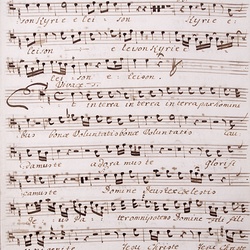 son Kyrie e lei son Kyrie e
leison e leison Kyrie e
lei son e leison.
et in terra in terra in terra pax homini
bus bonæ Voluntatis bonæ Voluntatis Lau
damus te adora mus te glorifi
camus te Domine Deus Rex Cælestis
De us Pa ter omnipotens Domine
Jesu Christe